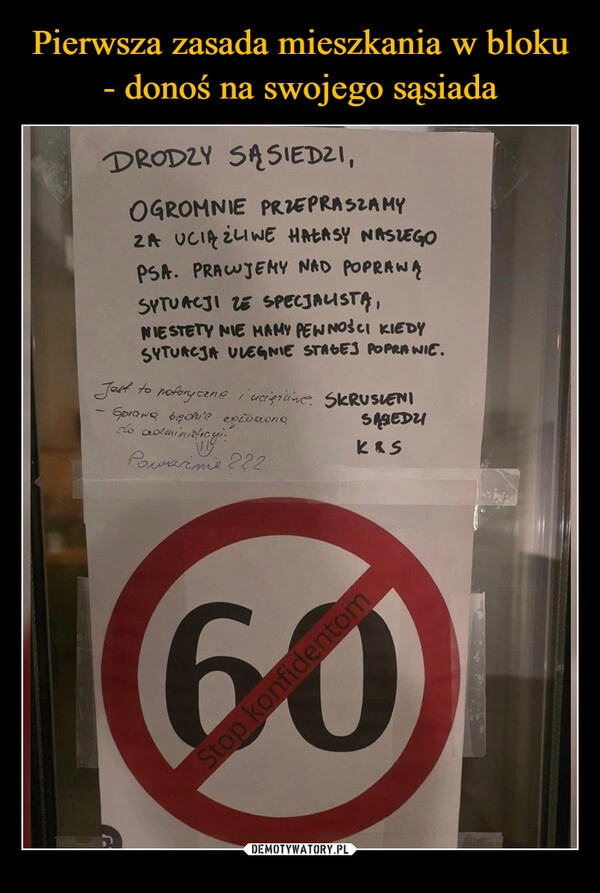 Pierwsza zasada mieszkania w bloku
- donoś na swojego sąsiada
DRODZY SĄSIEDZI,
OGROMNIE PRZEPRASZAMY
ZA UCIĄŻLIWE HAŁASY NASZEGO
PSA. PRACUJEMY NAD POPRAWĄ
SYTUACJI ZE SPECJALISTĄ,
NIESTETY NIE MAMY PEWNOŚCI KIEDY
SYTUACJA ULEGNIE STAŁEJ POPRAWIE.
SKRUSZENI
SĄSIEDZI
K & S
Jest to notoryczne i uciążliwe.
- Sprawa będzie zgłoszona
do administracji.
Poważnie???
60
Stop konfidentom
DEMOTYWATORY.PL